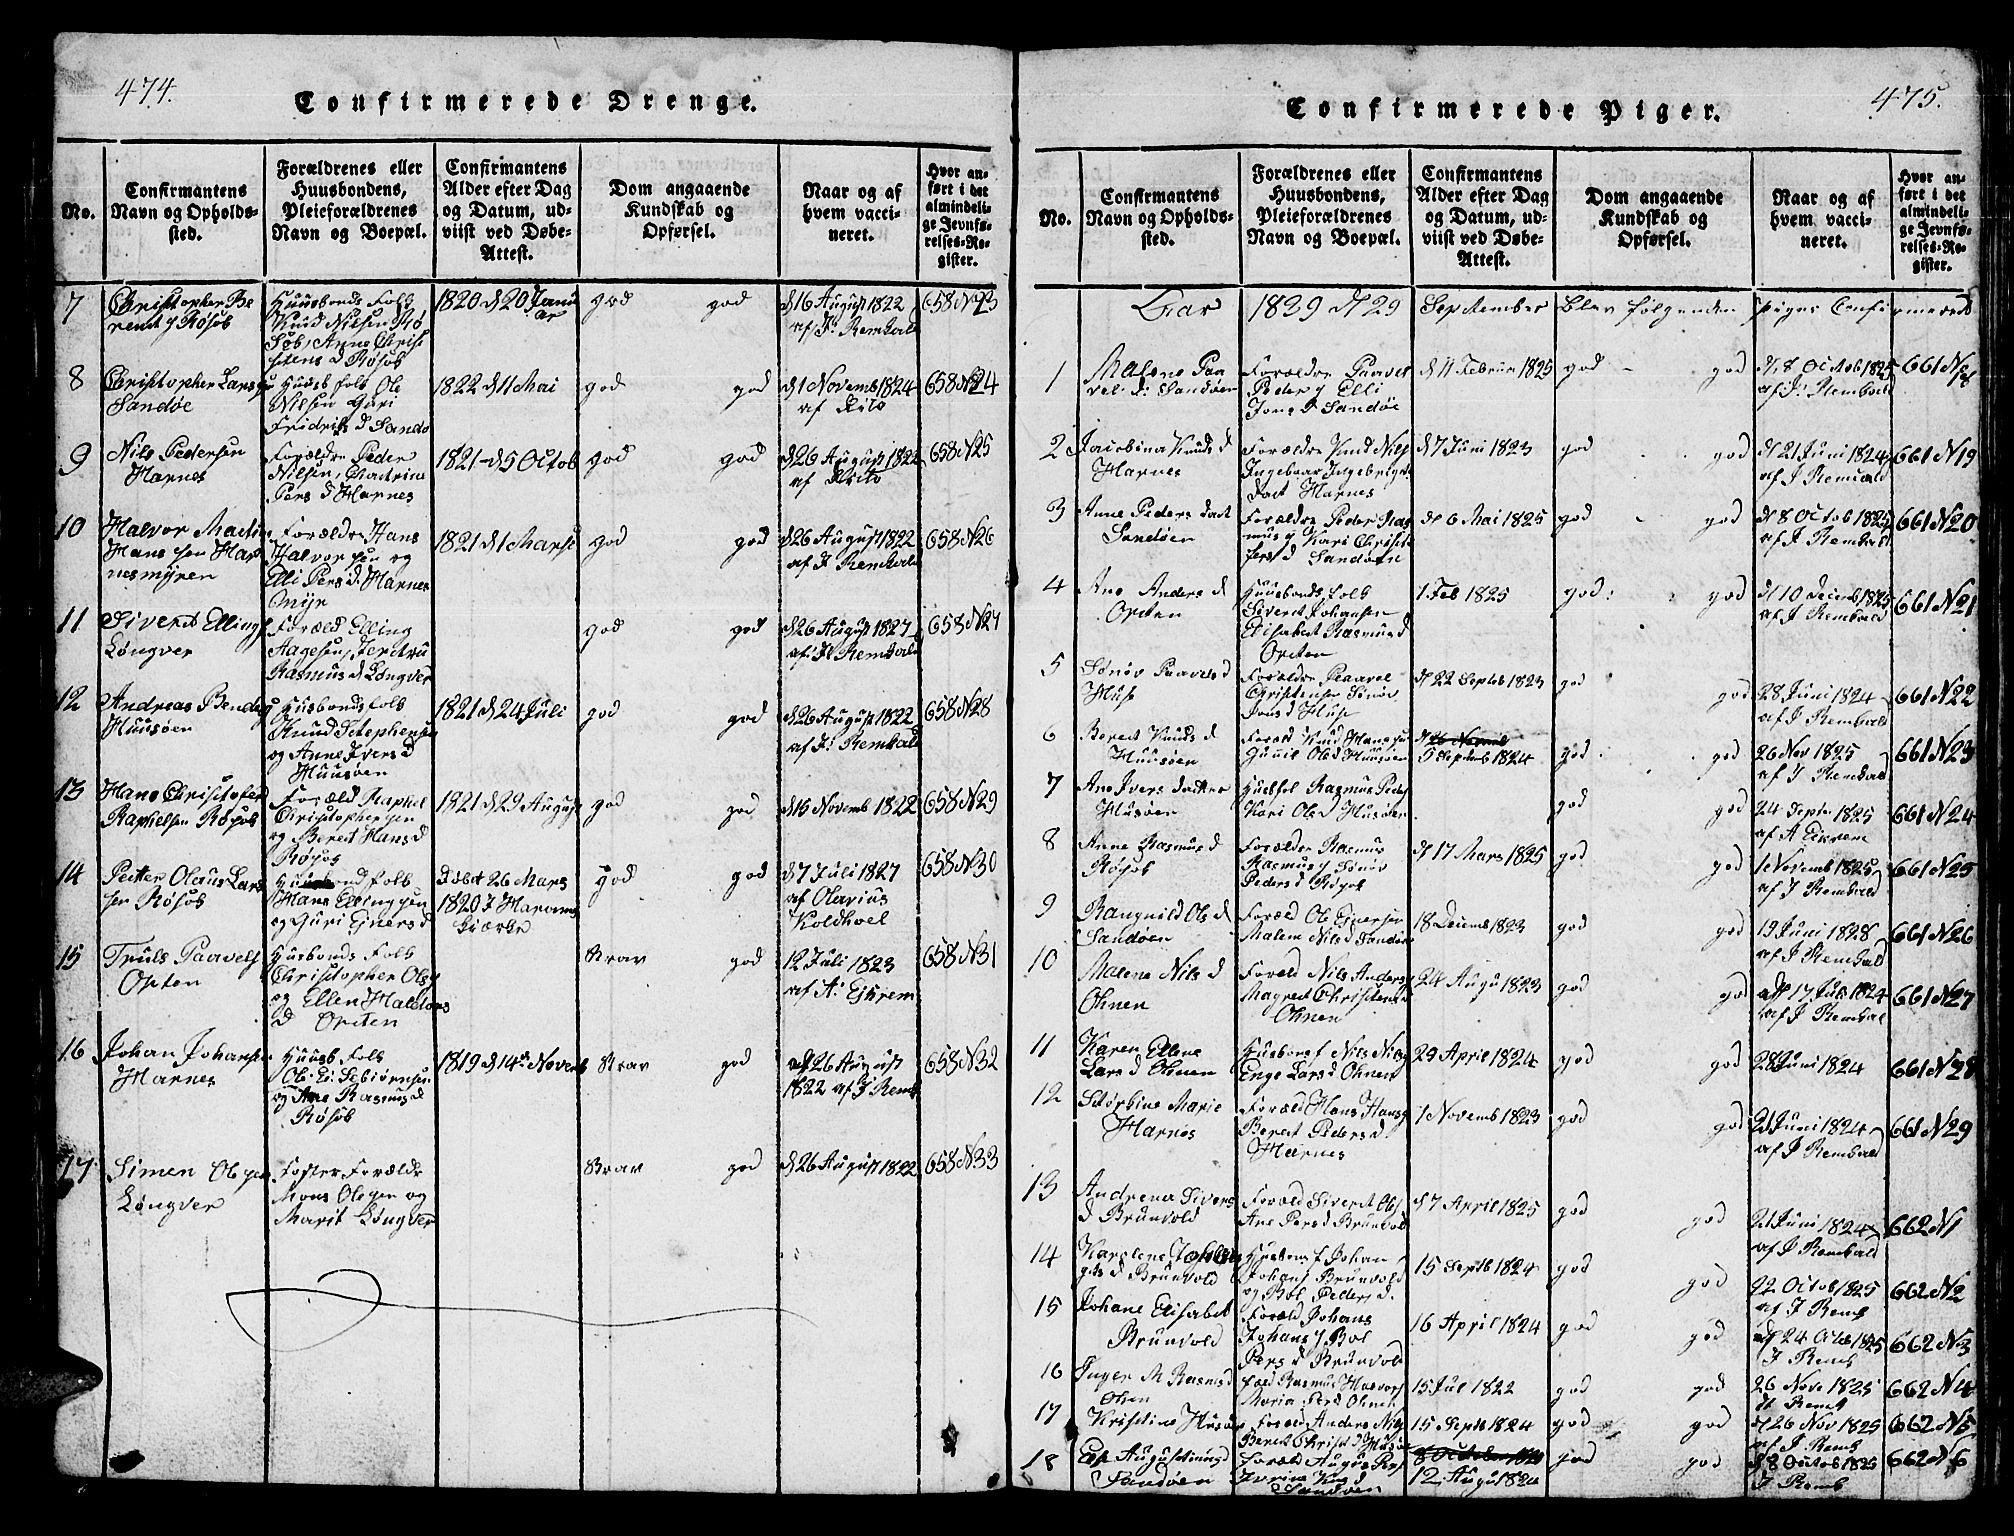 474.
Confirmerede Drenge.
No.
Confirmantens
Navn og Opholds-
sted.
Forældrenes eller
Huusbondens,
Pleieforældrenes
Navn og Boepæl.
Confirmantens
Alder efter Dag
og Datum, ud-
viist ved Døbe-
Attest.
Dom angaaende
Kundskab og
Opførsel.
Naar og af
hvem vacci-
neret.
Hvor an-
ført i det
almindeli-
ge Jevnfø-
relses-Re-
gister.
7
Christopher Be
rent y Røsøb
Huusbonds Folk
Knud Nilsen Rø
Søb, Anne Chris
stens d Røsøb
1820 d 20 Janu
ar
god god
d 16 August 1822
af J. Remvald
658 N 23
8
Christopher Lars
Sandøe
Huusb folk Ole
Nilsen Guri
Fridriks d Sandø
1822 d 1 Mai
god god
d 1 Novemb 1824
af
658 N 24
9
Nils Pedersen
Harnes
Forældre Peder
Nilsen, Chatrina
Pers d Harnes
1821 - d 5 Octob
god god
d 26 August 1822
af
658 N 25
10
Halvor Martin
Hans sen Har
nesmyren
Forældre Hans
Halvor sen og
Elli Pers d. Harnes
Myr
1821 d 1 Marsi
god god
d 26 August 1822
af J Remvald
658 N 26
11
Sivert Ellings
Longver
Foræld Elling
Aagesen,
Rasmus d Longver
god god
d 26 August 1827
af J Remvald
658 N 27
12
Andreas
Huusøen
Husbonds folk
Knud Stephensen
og Anne Ivers d
Huusøen
1821 d 24 Juli
god god
d 26 August 1822
af J. Remvald
658 N 28
13
Hans Christofer
Raphelsen Røsøb
Foræld Raphel
Christophersen
og Beret Hans d
Røsøb
1821 d 29 August
god god
d 15 Novemb 1822
658 N 29
14
Petter Olaus Lars
sen Røsøb
Huusbond folk
Hans Ellingsen
og Guri Ejners d
Døbt 26 Mars
1820 I Harams
kiørke
god god
d 7 Juli 1827
af Olavius
Koldhoel
658 N 30
15
Truls Paavels
Opsten
Husbonds Folk
Christopher Ols
og Ellen Haldors
d Opsten
Brav god
12 Juli 1823
af A. Ekrem
658 N 31
16
Johan Johansen
Harnes
Huusb Folk
Ole E. Sebiørnsen
og Ane Rasmus d
Røsøb
1819 d 14 Novem
Brav god
d 26 August
1822 af J Remb
658 N 32
17
Simen Ole sen
Longver
Foster Forældr
Mons Ole sen og
Marit Longver
Brav god
d 26 August 1822
658 N 33
475.
Confirmerede Piger.
No.
Confirmantens
Navn og Opholds-
sted.
Forældrenes eller
Huusbondens,
Pleieforældrenes
Navn og Boepæl.
Confirmantens
Alder efter Dag
og Datum, ud-
viist ved Døbe-
Attest.
Dom angaaende
Kundskab og
Opførsel.
Naar og af
hvem vacci-
neret.
Hvor an-
ført i det
almindeli-
ge Jevnfø-
relses-Re-
gister.
Aar 1839 d 29 September Blev følgenden piger Confirmerede
1
Malene Paa
vel d: Sandøen
Forældre Paavel
Peder y Elli
Jons d Sandøe
d 11 Februar 1825
god god
d 8 Octob 1825
af J. Rembald
661 N 18
2
Jacobina Knuds d
Harnes
Forældre Knud Nils
Ingeboar Ingebrigts
datt Harnes
d 7 Juni 1823
god god
d 21 Juni 1824
af J Remvald
661 N 19
3
Anne Peders datt
Sandøen
Forældre Peder Ras
mus y Kari Christ
fers d Sandøen
d 6 Mai 1825
god god
d 8 Octob 1825
af J Rembald
661 N 20
4
Ane Anders d
Opsten
Huusbonds folk
Sivert Johansen
Elisabet Rasmus d
Opsten
1 Feb 1825
god god
d 10 Decemb 1825
af J Rembald
661 N 21
5
Sønøv Paavels d
Huse
Forældre Paavel
Christensen Sønøv
Jons d Huse
d 22 Septeb 1823
god god
28 Juni 1824
af J Rembald
661 N 22
6
Beret Knuds d
Huusøen
Foræld Knud Hans sen
Gunil Ols d Huusøen
5 Septemb 1824
god god
26 Nov 1825
af J Rembald
661 N 23
7
Ane Ivers datter
Husøen
Huusfol Rasmus Peds
Kari Ols d Husøen
god god
24 Septe 1825
af A Eikrem
661 N 24
8
Anne Rasmus d
Røsøb
Forældre Rasmus
Rasmus y Sønøv
Peders d Røsøb
d 17 Mars 1825
god god
1 Novemb 1825
af J Rembald
661 N 25
9
Rangnild Ols d
Sandøen
Foræld Ole Ejnersen
Malene Nils d Sandøe
18 Decemb 1823
god god
19 Juni 1828
af J Rembald
661 N 26
10
Malene Nils d
Ohnen
Foræld Nils Anders
Magret Christens d
Ohnen
24 Augu 1823
god god
d 17 Juli 1824
af J Rembald
661 N 27
11
Karen Ellene
Lars d Ohnen
Husbonf Nils Nils
Enge Lars d Ohnen
29 April 1824
god god
28 Juni 1824
661 N 28
12
Størkine Marie
Harnes
Foræld Hans Hans
Beret Peders d
Harnes
1 Novemb 1823
god god
21 Juni 1824
af J Rembald
661 N 29
13
Andrena Sivers
d Brunvold
Foræld Sivert Ols
Ane Pers d Brunvold
d 7 April 1825
god god
21 Juni 1824
af J Rembald
662 N 1
14
Karolene
d Brunvold
Husbons f Johan
Johans Brunvold
og Bol Peders d.
15 Septb 1824
god god
22 Octob 1825
af J Remb
662 N 2
15
Johane Elisabet
Brunvold
Foræld Johans
Johans y Bol
Pers d Brunvold
16 April 1824
god god
d 24 Octob 1825
J Remb
662 N 3
16
Inger M Rasmus d
Ohnen
foæld Rasmus Halvors
Maria Pers Ohnen
15 Jul 1822
god god
26 Nove 1825
Remb
662 N 4
17
Kristine Husøen
Foræld Anders Nils
Beret Christ d Husøe
15 Septb 1824
god god
d 26 Nov 1825
af J Remb
662 N 5
18
Else Augustinus d
Sandøen
Foræld Augus Pers
Iverine Knu d
Sandøen
8 October 1820
12 Augu 1824
god god
d 8 Octob 1825
J Remb
662 N 6